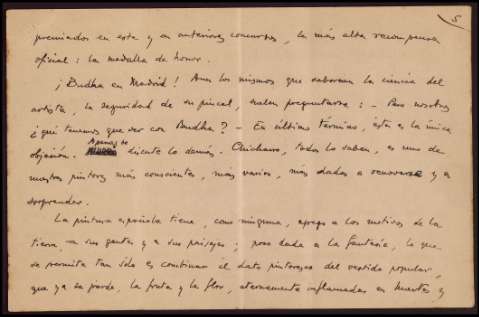 5
premiados en este y en anteriores concursos, la más alta recompensa
oficial: la medalla de honor.
¡Budha en Madrid! Aun los mismos que saborean la ciencia del
artista, la seguridad de su pincel, suelen preguntarse: - Pero nosotros
¿qué tenemos que ver con Budha? - En último término, ésta es la única
objeción. Apenas se discute lo demás. Chicharro, todos lo saben, es uno de
nuestros pintores más conscientes, más varios, más dados a renovarse y a
sorprender.
La pintura española tiene, como ninguna, apego a los motivos de la
tierra, a sus gentes y a sus paisajes; poco dada a la fantasía, lo que
se permita tan sólo es combinar el dato pintoresco del vestido popular,
que ya se pierde, la fruta y la flor, eternamente inflamadas en huertos y